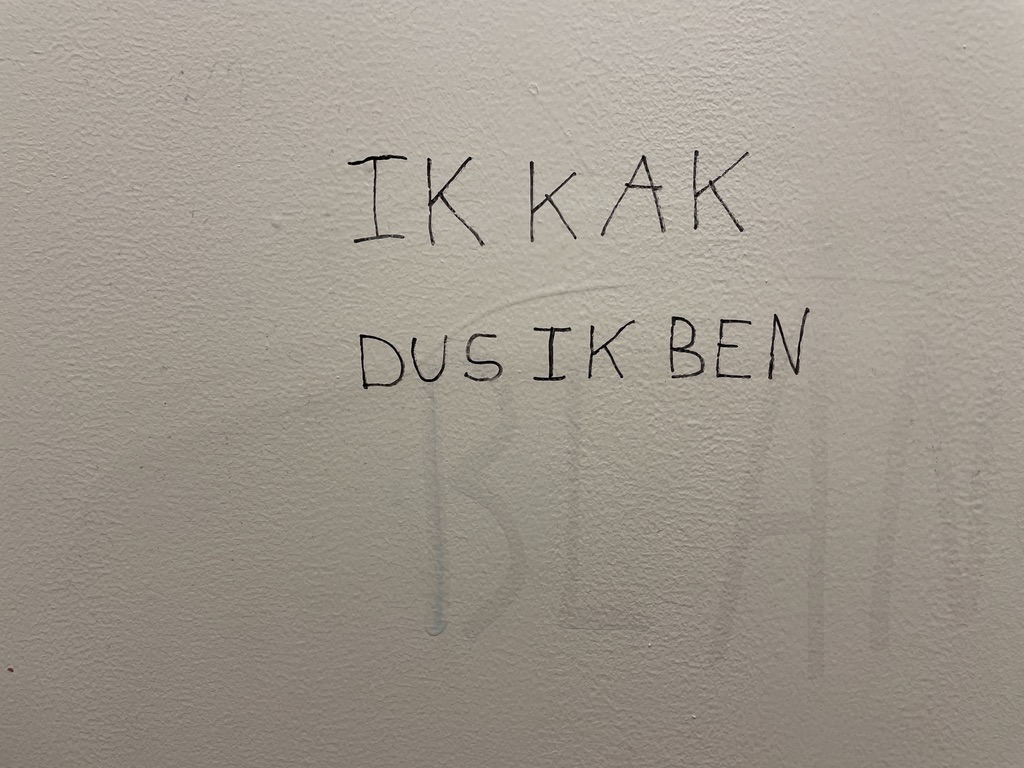 IK KAK
DUS IK BEN